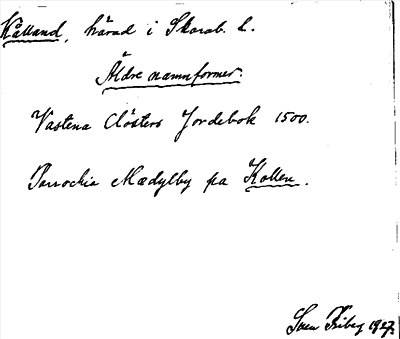 Kålland, härad i Skarab. l.
Äldre namnformer.
Vastena Closters Jordebok 1500.
Parrochia Mædylby pa Kollen.
Sven Friberg 1927.